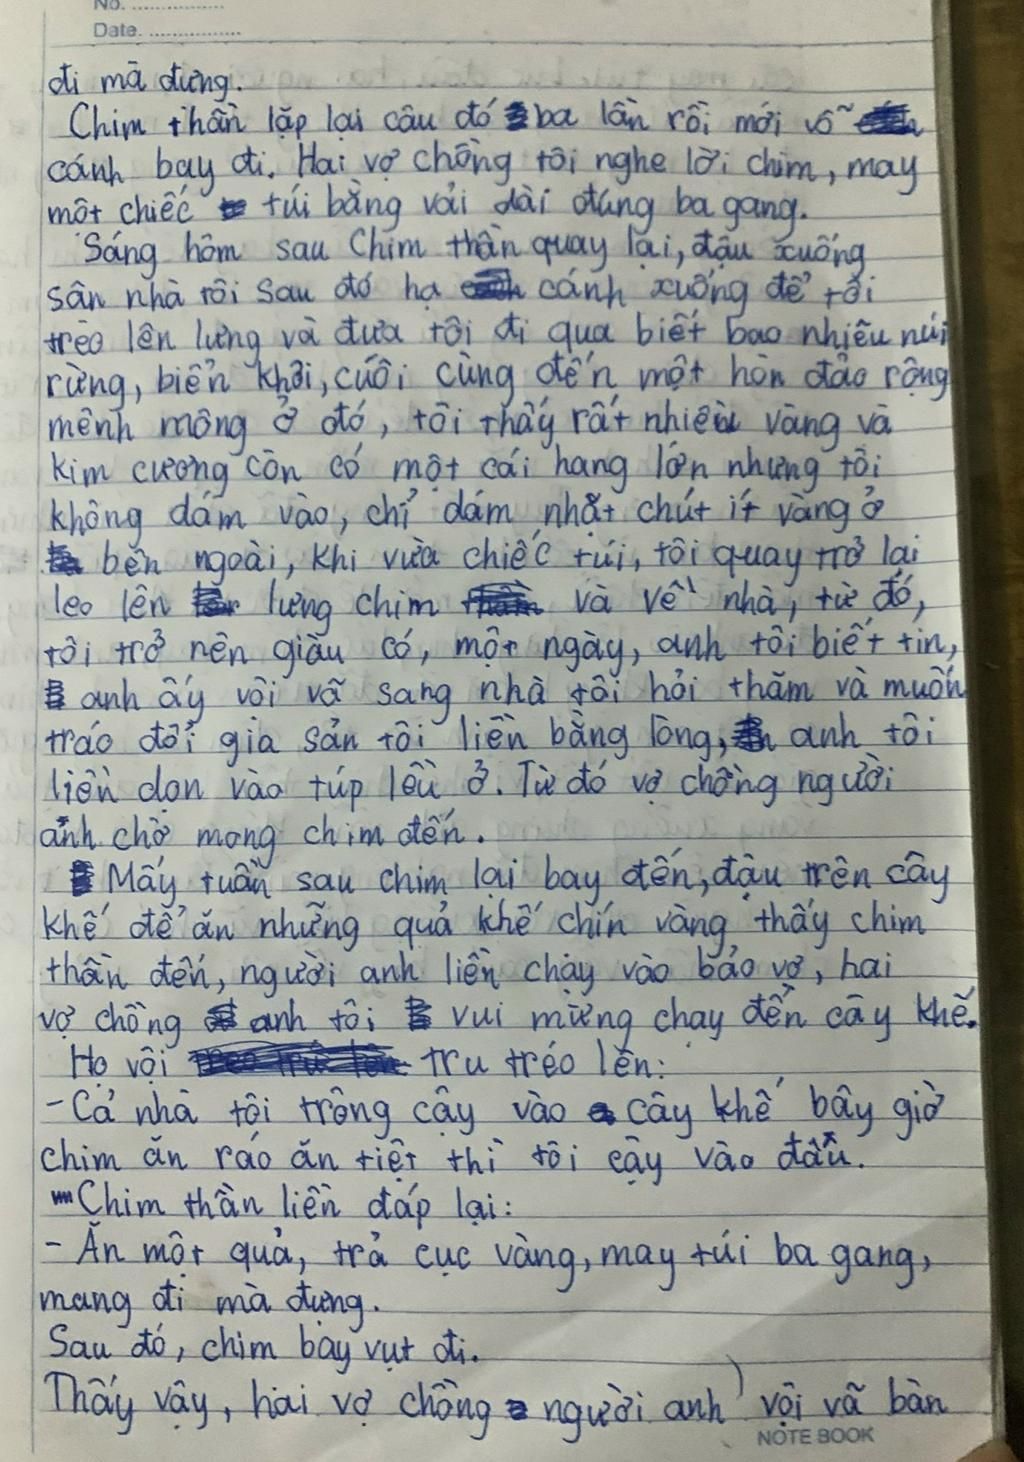 No. ...............
Date. ...............
đi mà đựng.
Chim thần lặp lại câu đó ba lần rồi mới vỗ
cánh bay đi. Hai vợ chồng tôi nghe lời chim, may
một chiếc túi bằng vải dài đúng ba gang.
Sáng hôm sau Chim thần quay lại, đậu xuống
sân nhà tôi sau đó hạ cánh xuống để tôi
trèo lên lưng và đưa tôi đi qua biết bao nhiêu núi
rừng, biển khơi, cuối cùng đến một hòn đảo rộng
mênh mông ở đó, tôi thấy rất nhiều vàng và
kim cương còn có một cái hang lớn nhưng tôi
không dám vào, chỉ dám nhặt chút ít vàng ở
bên ngoài, khi vừa chiếc túi, tôi quay trở lại
leo lên lưng chim và về nhà, từ đó,
tôi trở nên giàu có, một ngày, anh tôi biết tin,
anh ấy vôi vã sang nhà tôi hỏi thăm và muốn
tráo đổi gia sản tôi liền bằng lòng, anh tôi
liền dọn vào túp lều ở. Từ đó vợ chồng người
anh chờ mong chim đến.
Mấy tuần sau chim lại bay đến, đậu trên cây
khế để ăn những quả khế chín vàng thấy chim
thần đến, người anh liền chạy vào bảo vợ, hai
vợ chồng anh tôi vui mừng chạy đến cây khế.
Họ vội tru tréo lên:
- Cả nhà tôi trông cậy vào cây khế bây giờ
chim ăn ráo ăn tiệt thì tôi cậy vào đâu.
Chim thần liền đáp lại:
- Ăn một quả, trả cục vàng, may túi ba gang,
mang đi mà đựng.
Sau đó, chim bay vụt đi.
Thấy vậy, hai vợ chồng người anh vội vã bàn
NOTE BOOK